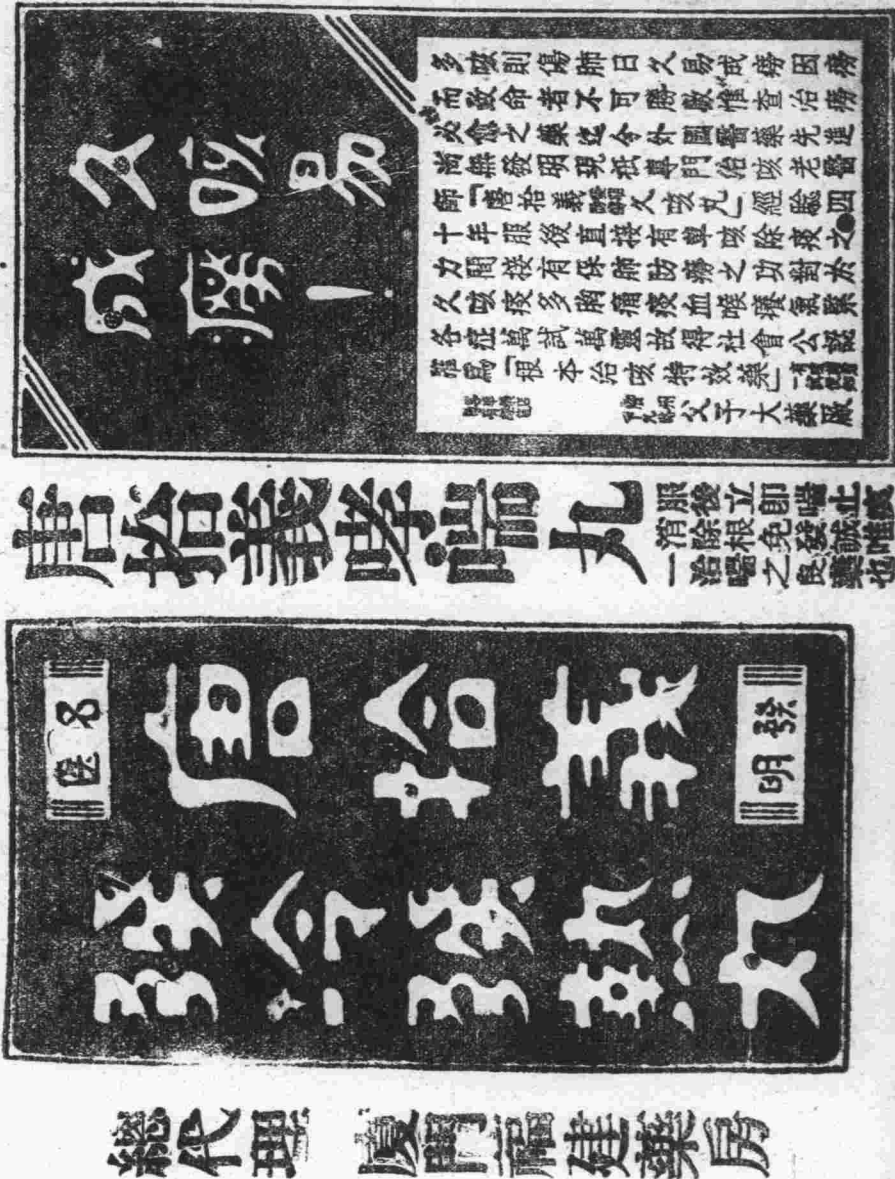 久咳易
成癆!
多咳則傷肺日久易成癆因癆
而致命者不可勝數惟查治癆
必愈之藥迄今外國醫藥先進
尚無發明現祇專門治咳老醫
師「唐拾義久咳丸」經驗四
十年服後直接有專咳除痰之
力間接有保肺防癆之功對於
久咳痰多胸痛痰血喉癢氣緊
各症萬試萬靈故得社會公認
推為「根本治咳特效藥」
父子大藥廠
唐拾義哮喘丸
服後立即喘止痰
消除根免發誠唯
一治喘之良藥也
名醫
唐拾義
發明
發冷發熱丸
總代理 廈門福建藥房